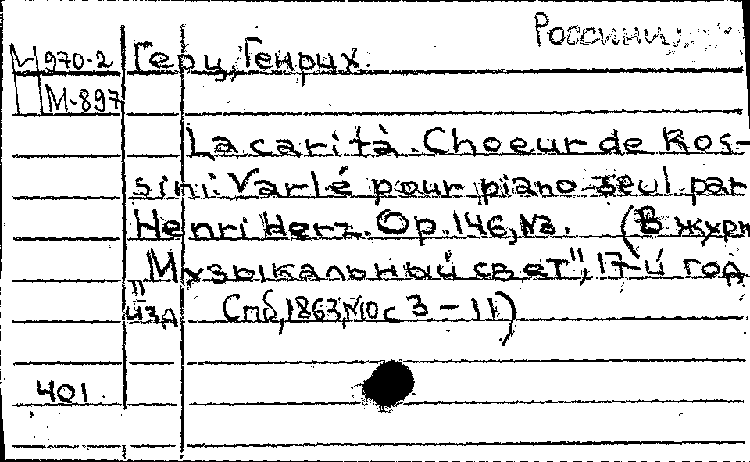 Россини
Ц 970-2 Герц, Генрих.
М-897
La carità. Choeur de Ros-
sini. Varié pour piano seul par
Henri Herz. Op. 146, №3. (В журн
„Музыкальный свет", 17-й год
изд Спб, 1863, №10 с 3-11)
401.